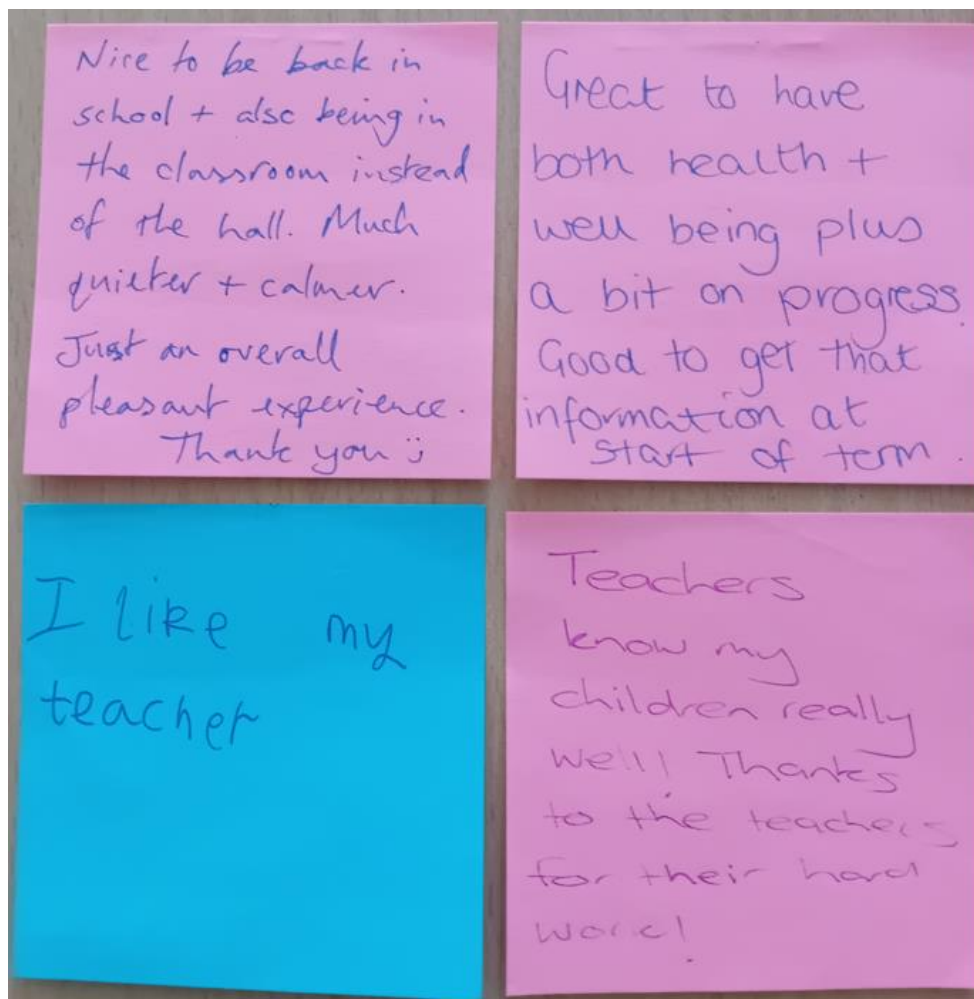 Nice to be back in
school + also being in
the classroom instead
of the hall. Much
quieter + calmer.
Just an overall
pleasant experience.
Thank you :)
Great to have
both health +
well being plus
a bit on progress.
Good to get that
information at
start of term.
I like my
teacher
Teachers
know my
children really
well! Thanks
to the teachers
for their hard
work!